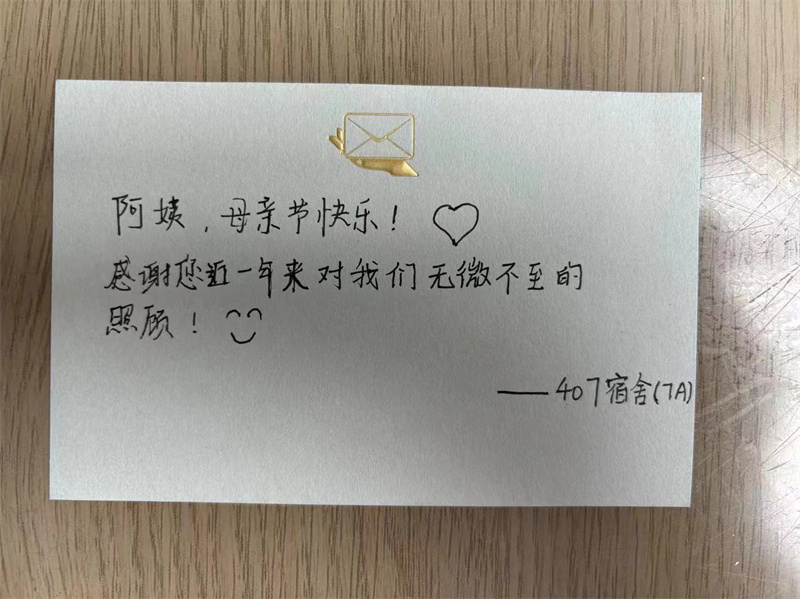 阿姨，母亲节快乐！♡
感谢您近一年来对我们无微不至的
照顾！
——407宿舍(7A)